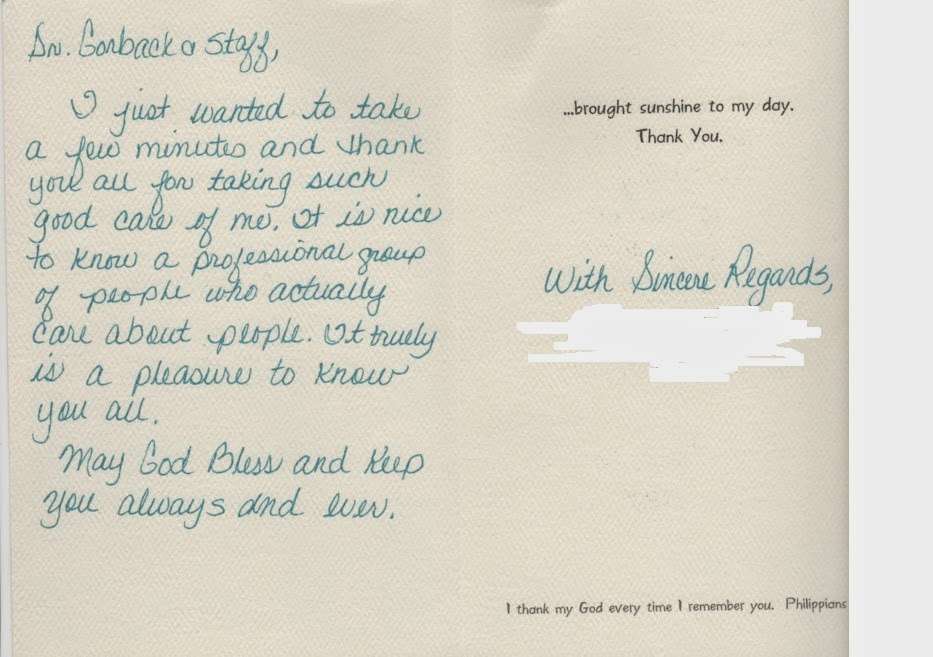 Dr. Gorback & Staff,
I just wanted to take
a few minutes and thank
you all for taking such
good care of me. It is nice
to know a professional group
of people who actually
care about people. It truely
is a pleasure to know
you all.
May God Bless and Keep
you always and ever.
...brought sunshine to my day.
Thank You.
With Sincere Regards,
I thank my God every time I remember you. Philippians